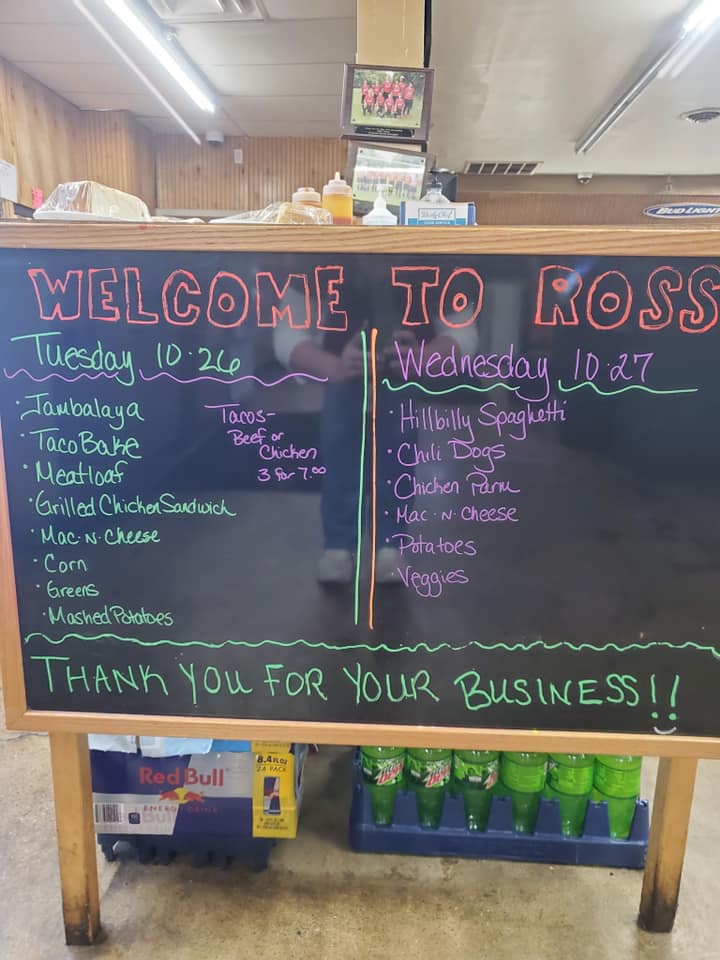 BUD LIGHT
WELCOME TO ROSS
Tuesday 10·26
·Jambalaya
·Taco Bake
·Meatloaf
·Grilled Chicken Sandwich
·Mac·N·Cheese
·Corn
·Greens
·Mashed Potatoes
Tacos-
Beef or
Chicken
3 for 7.00
Wednesday 10·27
·Hillbilly Spaghetti
·Chili Dogs
·Chicken Parm
·Mac·N·Cheese
·Potatoes
·Veggies
THANK YOU FOR YOUR BUSINESS!!
Red Bull
ENERGY DRINK
8.4 FL OZ
24 PACK